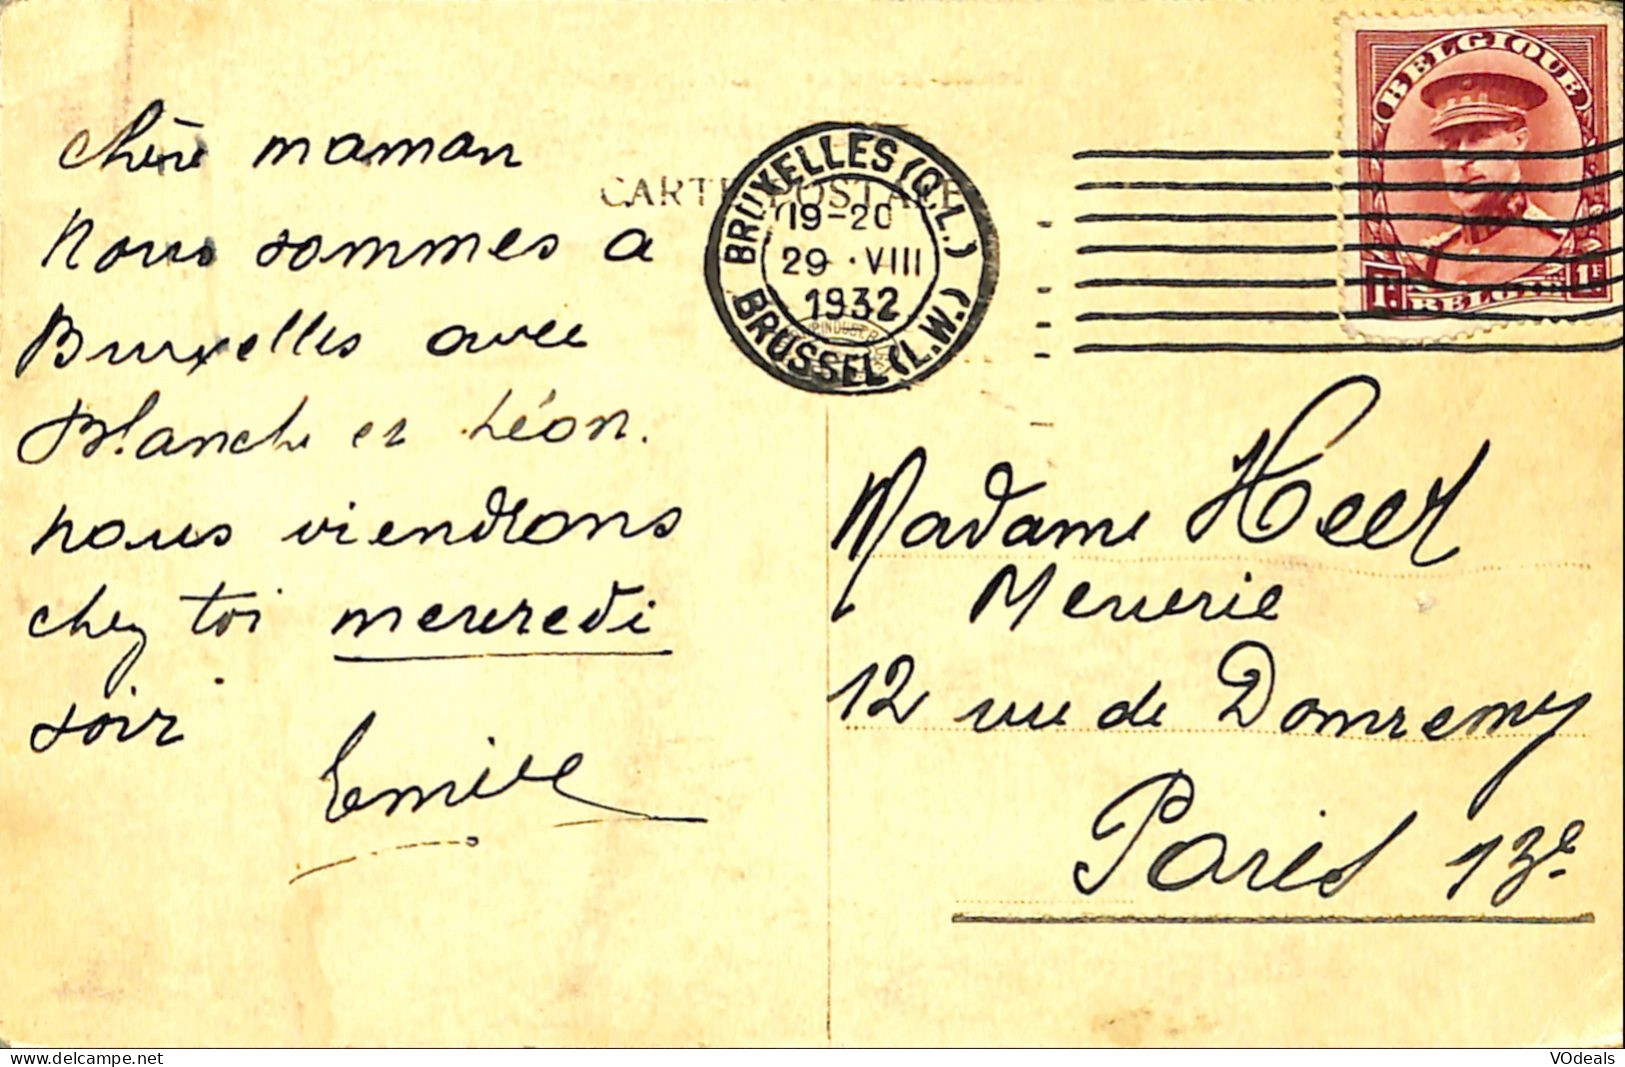 chère maman
Nous sommes a
Bruxelles avec
Blanche et Léon.
nous viendrons
chez toi mercredi
soir
Emile
CARTE POSTALE
BRUXELLES (Q.L.)
19-20
29 · VIII
1932
BRUSSEL (L.W.)
BELGIQUE
1F 1F
BELGIE
Madame Heer
12 rue de Domremy
Paris 13e
VOdeals